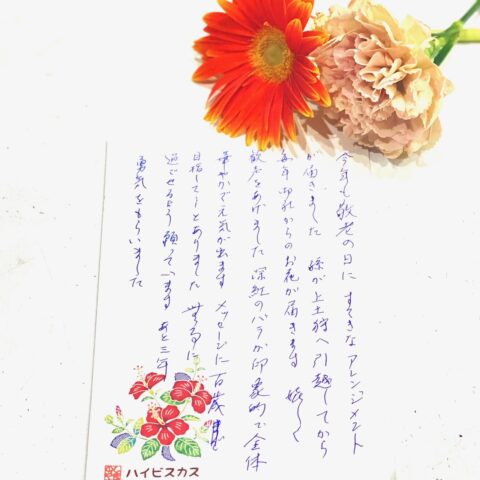 今年も敬老の日に すてきなアレンジメント
が届きました 孫が上土狩へ引越してから
毎年御社からのお花が届きます 嬉しく
歓声をあげました 深紅のバラが印象的で全体
華やかで元気が出ます メッセージに百歳まで
目指してーとありました 無事に
過ごせるよう願っています あと三年
勇気をもらいました
ハイビスカス